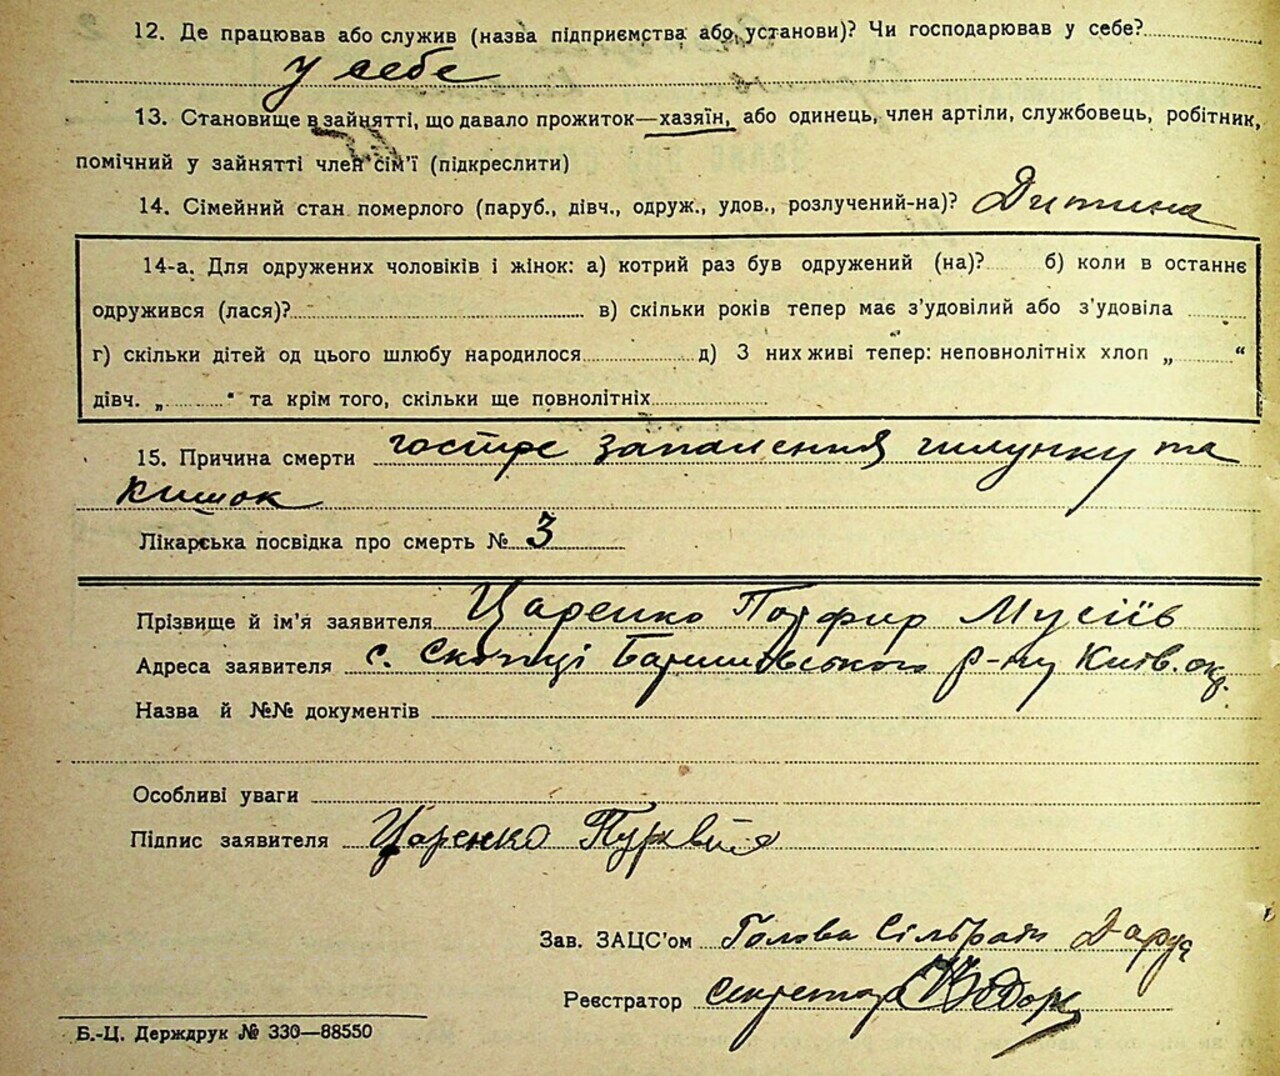 12. Де працював або служив (назва підприємства або установи)? Чи господарював у себе?
у себе
13. Становище в зайнятті, що давало прожиток—хазяїн, або одинець, член артіли, службовець, робітник,
помічний у зайнятті член сім'ї (підкреслити)
14. Сімейний стан померлого (паруб., дівч., одруж., удов., розлучений-на)? Дитина
14-а. Для одружених чоловіків і жінок: а) котрий раз був одружений (на)? б) коли в останнє
одружився (лася)? в) скільки років тепер має з'удовілий або з'удовіла
г) скільки дітей од цього шлюбу народилося д) З них живі тепер: неповнолітніх хлоп „ “
дівч. „ “ та крім того, скільки ще повнолітніх
15. Причина смерти гостре запалення шлунку та
кишок
Лікарська посвідка про смерть № 3
Прізвище й ім'я заявителя Царенко Порфир Мусіїв
Адреса заявителя с. Скопці Баришівського р-ну Київ. окр.
Назва й №№ документів
Особливі уваги
Підпис заявителя Царенко
Зав. ЗАЦС'ом Голова Сільради
Реєстратор секретар
Б.-Ц. Держдрук № 330—88550